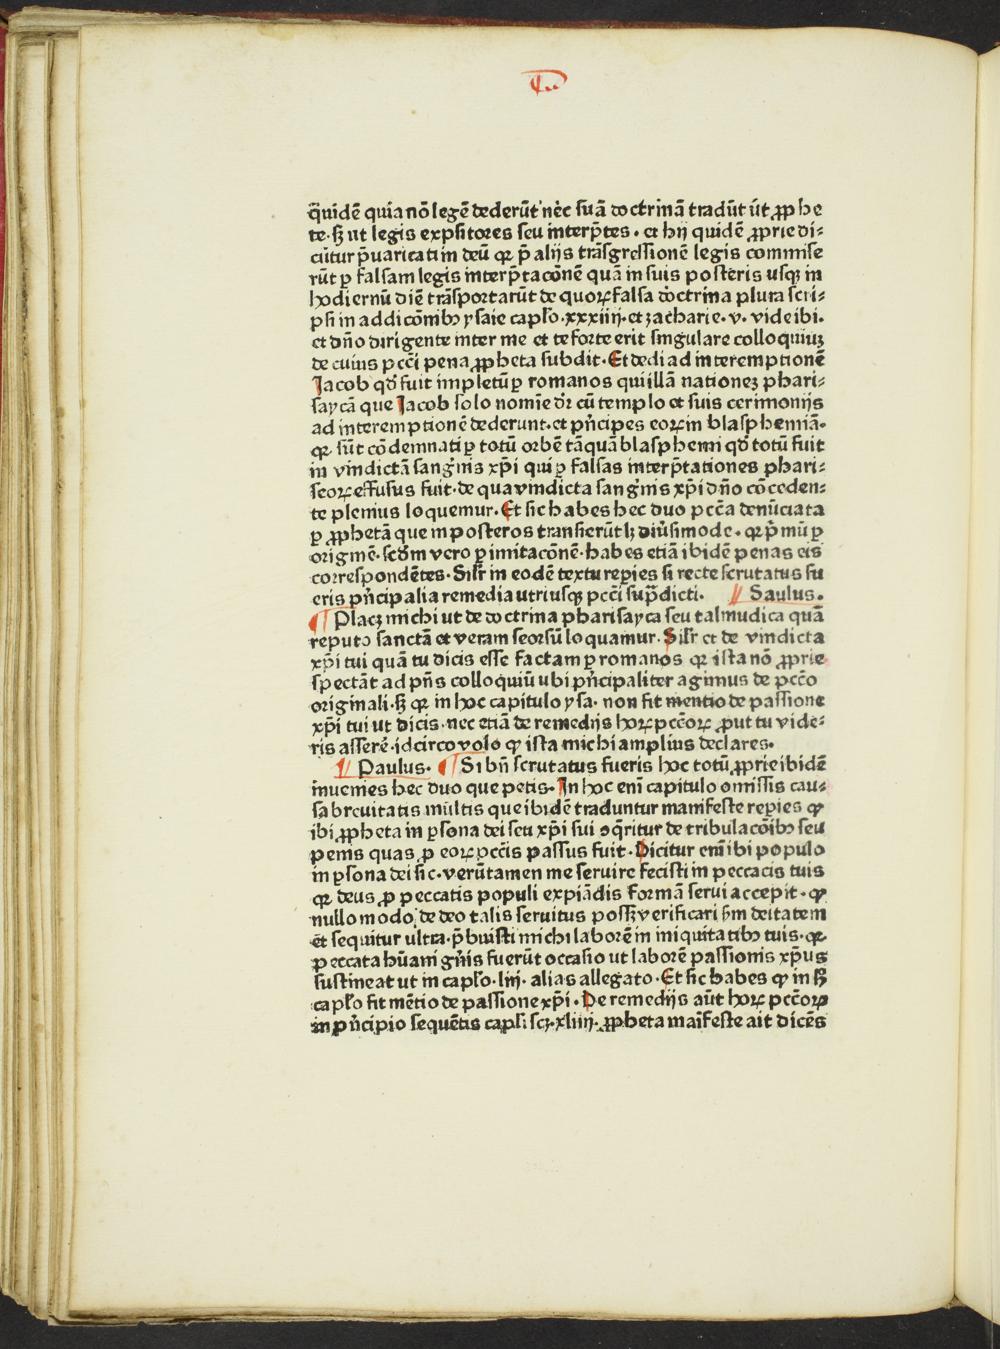 q̄uidē quia nō legē dederūt nec suā doctrinā tradūt ut ꝓphe
te·sꝫ ut legis expsitores seu interp̄tes·et hij quidē ꝓprie di⸗
cūtur p̄uaricati in deū qꝛ p̄ alijs trāsgressionē legis commise
rūt ꝑ falsam legis interp̄taconē quā in suis posteris usqꝫ in
hodiernū diē trāsportarūt de quoꝝ falsa doctrina plura scri⸗
psi in addicōnibꝰ ysaie caplo·xxxiiij·et zacharie·v·vide ibi·
et dn̄o dirigente inter me et te forte erit singulare colloquiuꝫ
de cuius pcc̄i pena ꝓpheta subdit·Et dedi ad interemptionē
Jacob qd̄ fuit impletū ꝑ romanos qui illā nationeꝫ phari⸗
saycā que Jacob solo nomīe dr̄ cū templo et suis cerimonijs
ad interemptionē dederunt·et pn̄cipes eoꝝ in blasphemiā·
qꝛ sūt cōdemnati ꝑ totū orbē tāquā blasphemi qd̄ totū fuit
in vindictā sangīnis xp̄i qui ꝑ falsas interp̄tationes phari⸗
seoꝝ effusus fuit·de qua vindicta sangīnis xp̄i dn̄o cōceden⸗
te plenius loquemur·Et sic habes hec duo pcc̄a denūciata
ꝑ ꝓphetā que in posteros transierūt lꝫ diūsimode·qꝛ p̄mū ꝑ
originē·scd̄m vero ꝑ imitacōnē·habes etiā ibidē penas eis
correspondētes·Silr̄ in eodē textu reꝑies si recte scrutatus fu
eris pn̄cipalia remedia utriusqꝫ pcc̄i sup̄dicti· ¶ Saulus·
¶ Placꝫ michi ut de doctrina pharisayca seu talmudica quā
reputo sanctā et veram seorsū loquamur·Silr̄ et de vindicta
xp̄i tui quā tu dicis esse factam ꝑ romanos qꝛ ista nō ꝓprie
spectāt ad pn̄s colloquiū ubi pn̄cipaliter agimus de pcc̄o
originali·sꝫ qꝛ in hoc capitulo ysa·non fit mentio de passione
xp̄i tui ut dicis·nec etiā de remedijs hoꝝ pcc̄oꝝ ꝓut tu vide⸗
ris asserē·idcirco volo ꝙ ista michi amplius declares·
¶ Paulus· ¶ Si bn̄ scrutatus fueris hoc totū ꝓprie ibidē
inuenies hec duo que petis·In hoc eni capitulo omissis cau⸗
sa breuitatis multis que ibidē traduntur manifeste reꝑies ꝙ
ibi ꝓpheta in ꝑsona dei seu xp̄i sui ꝯq̄ritur de tribulacōibꝰ seu
penis quas ꝓ eoꝝ pcc̄is passus fuit·Dicitur eni ibi populo
in ꝑsona dei sic·verūtamen me seruire fecisti in peccatis tuis
qꝛ deus ꝓ peccatis populi expiādis formā serui accepit·ꝙ
nullo modo de deo talis seruitus possꝫ verificari sm̄ deitatem
et sequitur ultra·p̄buisti michi laborē in iniquitatibꝰ tuis·qꝛ
ꝓ peccata hūani gn̄is fuerūt occasio ut laborē passionis xp̄us
sustineat ut in caplo·liij·alias allegato·Et sic habes ꝙ in
caplo fit mētio de passione xp̄i·De remedijs aūt hoꝝ pcc̄oꝝ
in pn̄cipio sequētis capli scꝫ·xliiij·ꝓpheta maīfeste ait dicēs